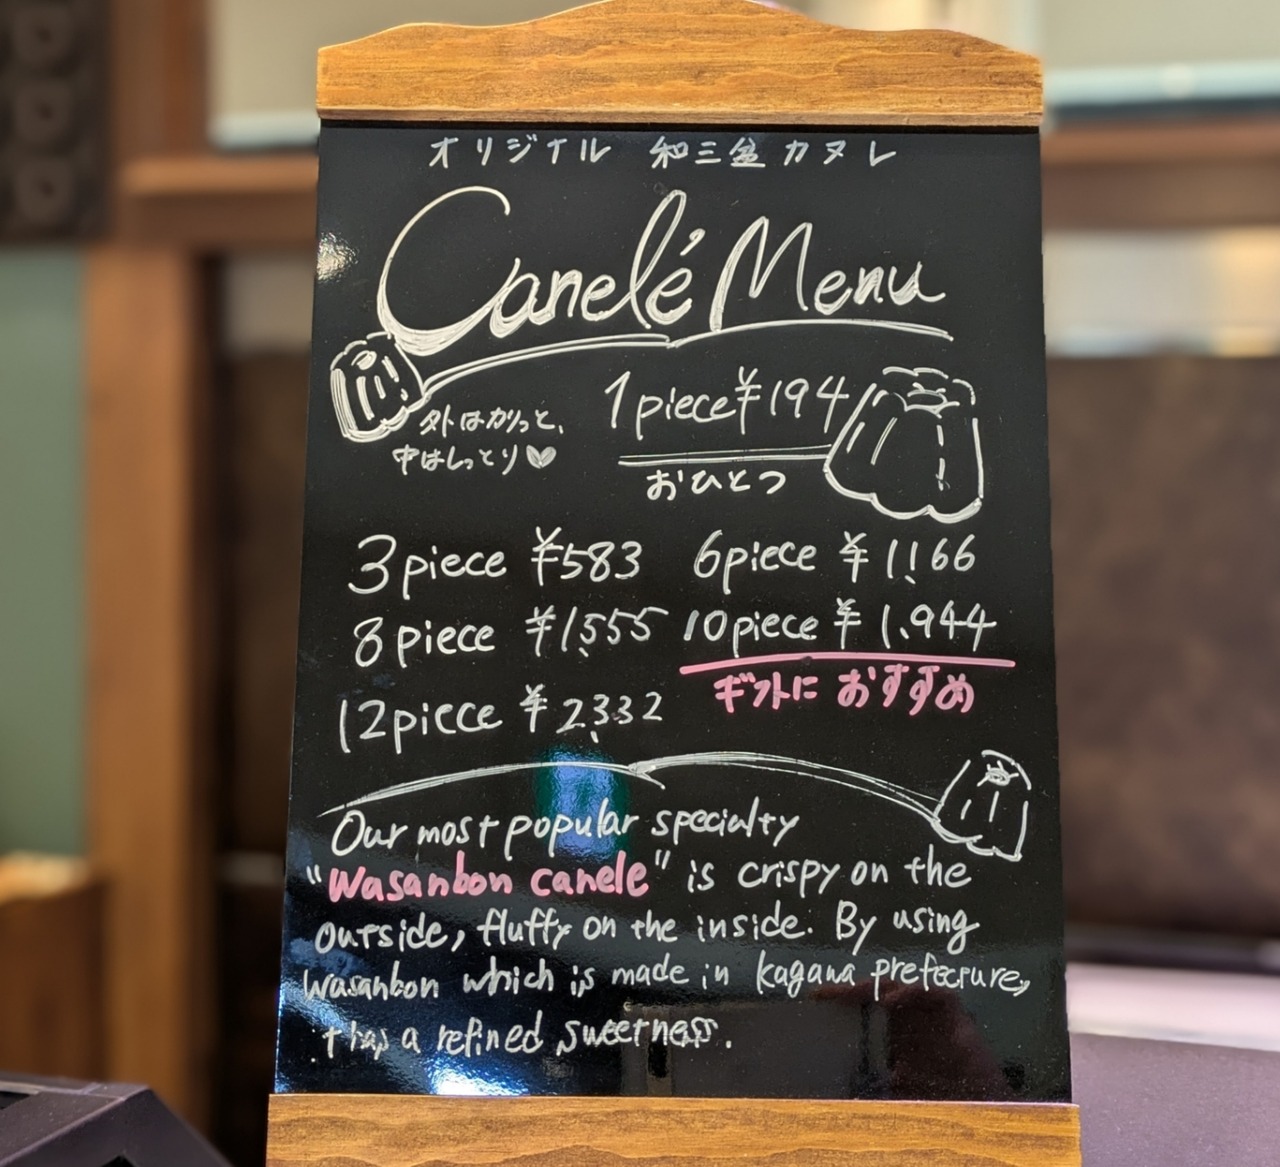 オリジナル 和三盆カヌレ
Canelé Menu
外はカリっと、
中はしっとり
1 piece ¥194
おひとつ
3 piece ¥583
6 piece ¥1,166
8 piece ¥1,555
10 piece ¥1,944
ギフトに おすすめ
12 piece ¥2,332
Our most popular specialty
"Wasanbon canele" is crispy on the
outside, fluffy on the inside. By using
Wasanbon which is made in kagawa prefecture,
thas a refined sweetness.